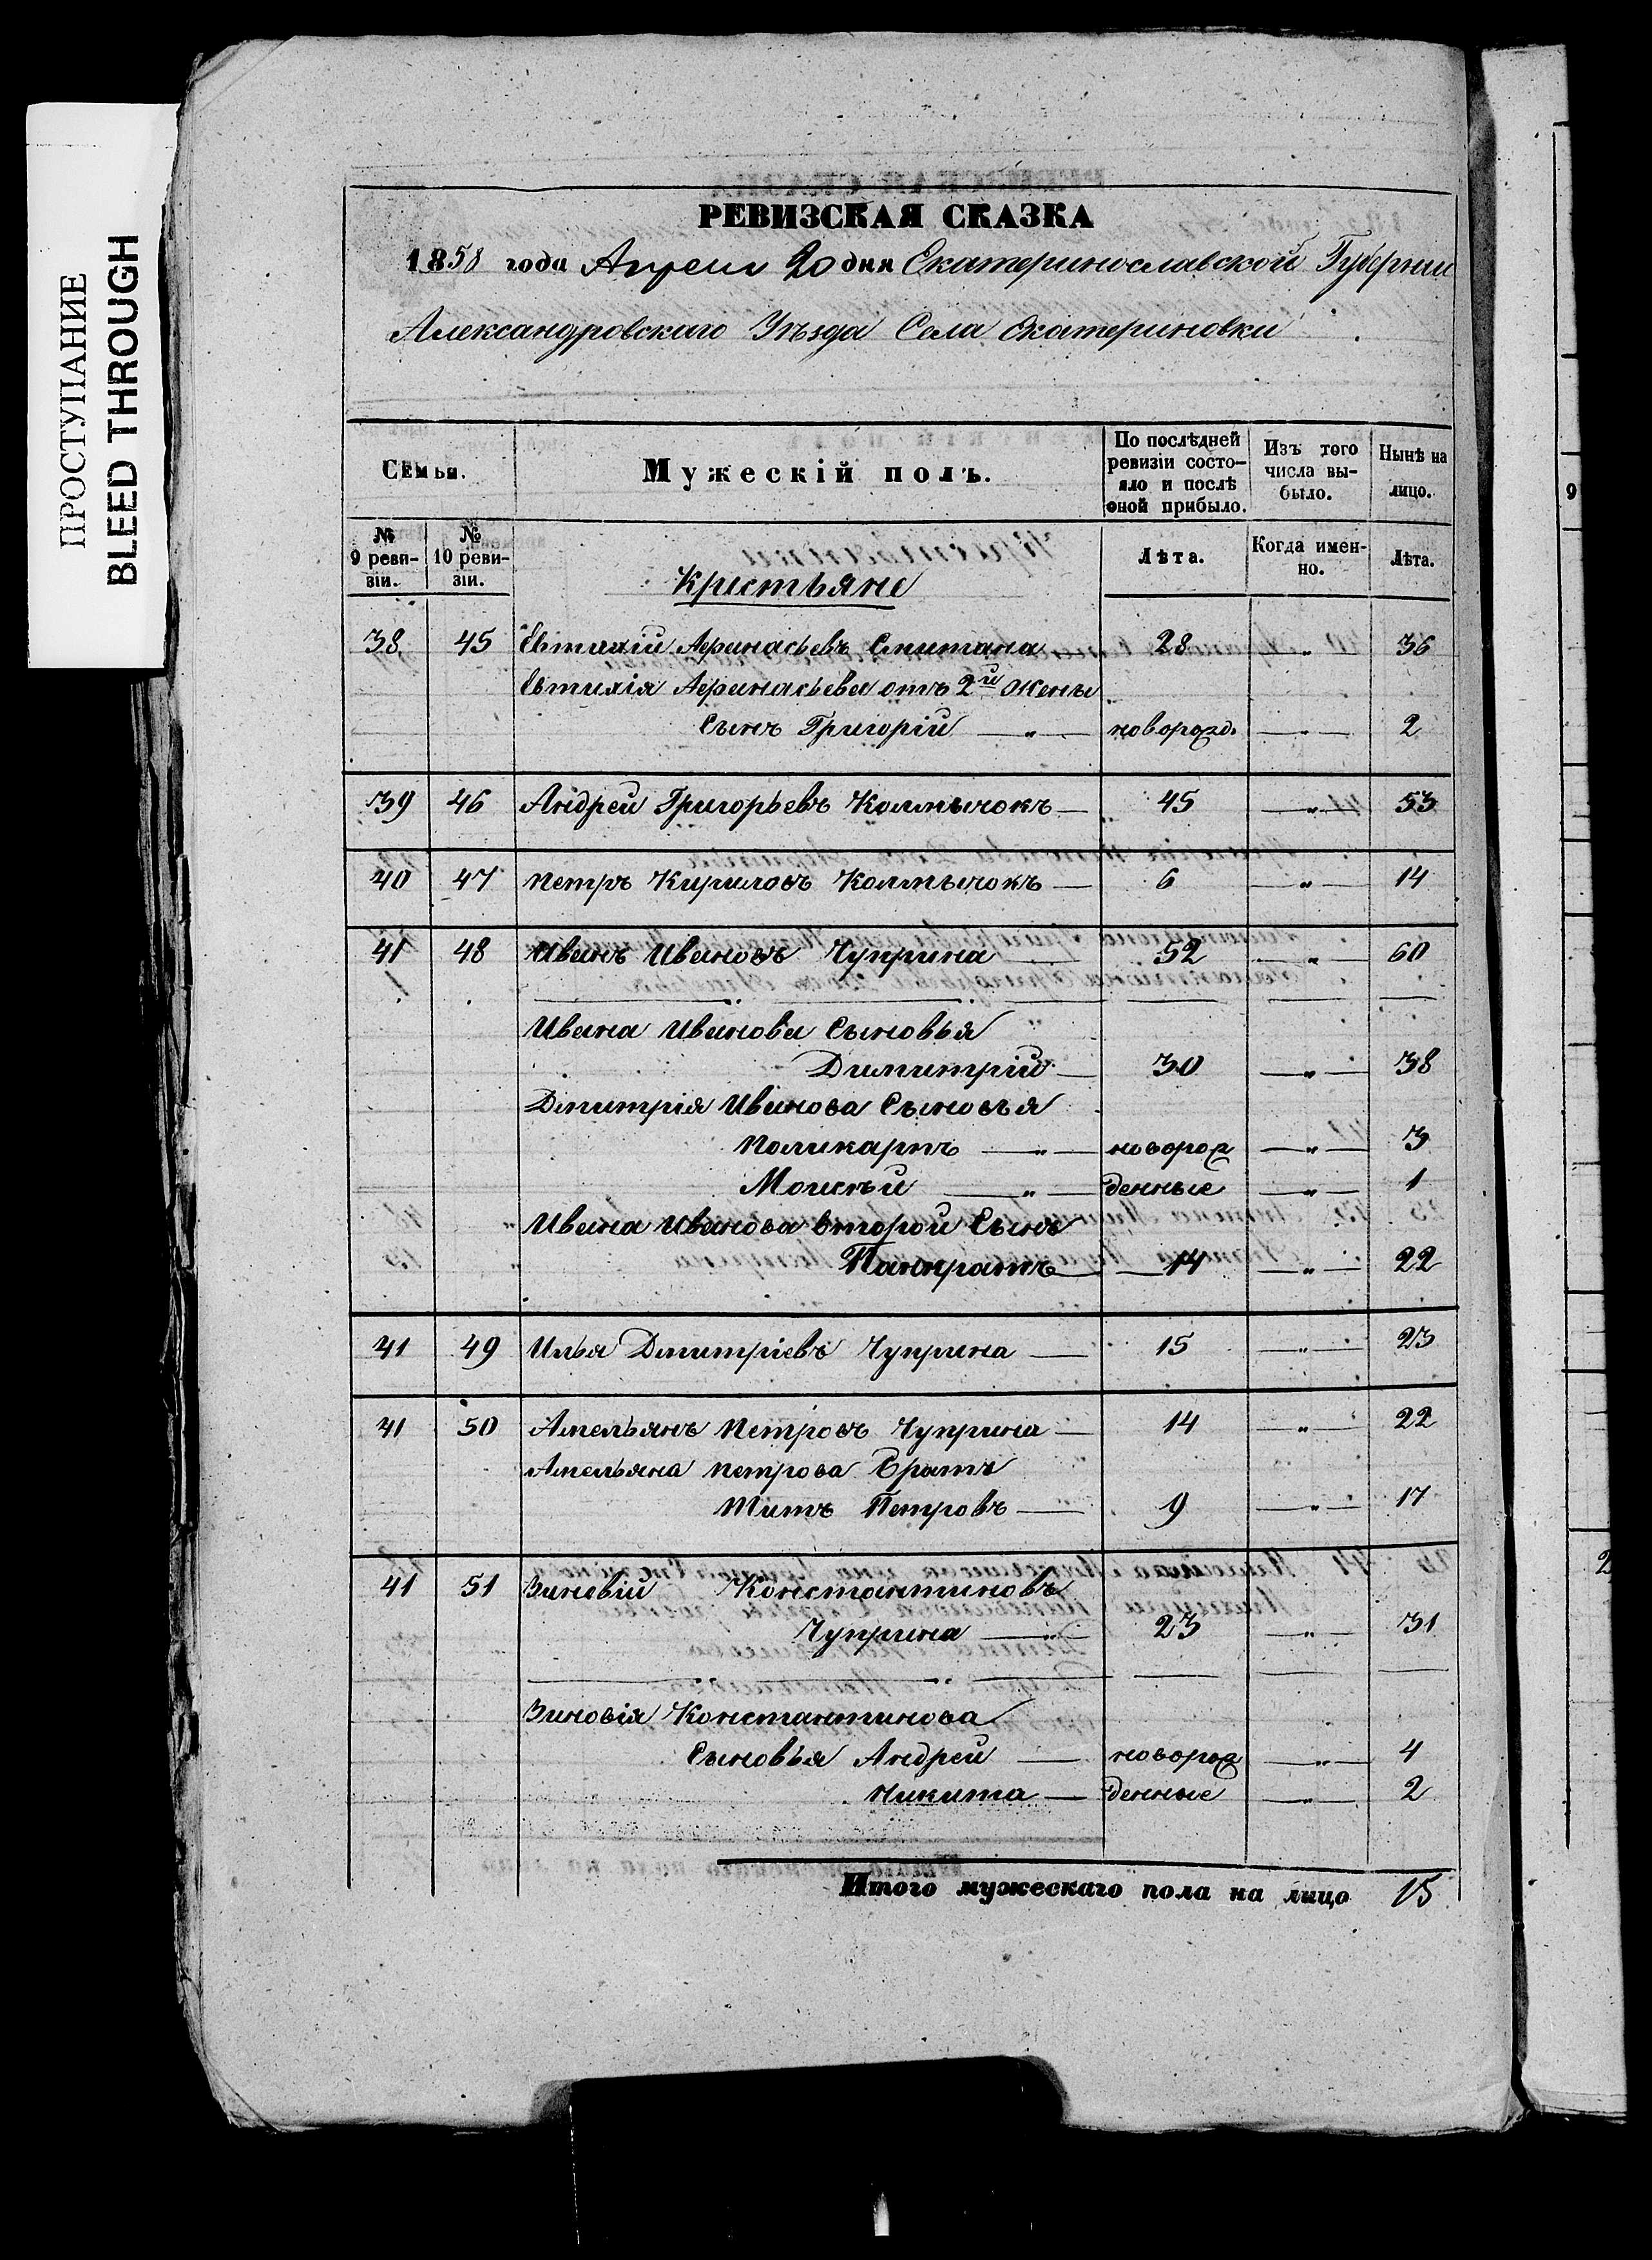 ПРОСТУПАНИЕ
BLEED THROUGH
РЕВИЗСКАЯ СКАЗКА
1858 года Апреля 20 дня Екатеринославской Губернии
Александровскаго Уѣзда Села Екатериновки
Семьи. Мужескій полъ. По послѣдней ревизіи состояло и послѣ оной прибыло. Изъ того числа выбыло. Нынѣ на лицо.
№ 9 ревизіи. № 10 ревизіи. Лѣта. Когда именно. Лѣта.
Крестьяне
38 45 Евтихій Афанасьевъ Смитана 28 — 36
Евтихія Афанасьева отъ 2й жены
Сынъ Григорій — новорожд. — 2
39 46 Андрей Григорьевъ Колмычокъ — 45 — 53
40 47 Петръ Кириловъ Колмычокъ — 6 — 14
41 48 Иванъ Ивановъ Чуприна — 52 — 60
Ивана Иванова Сыновья
Димитрій — 30 — 38
Дмитрія Иванова Сыновья
Поликарпъ — новорож — 3
Моисѣй — денные — 1
Ивана Иванова второй Сынъ
Панкратъ — 14 — 22
41 49 Илья Дмитріевъ Чуприна — 15 — 23
41 50 Амельянъ Петровъ Чуприна — 14 — 22
Амельяна Петрова Братъ
Титъ Петровъ — 9 — 17
41 51 Зиновій Константиновъ
Чуприна — 23 — 31
Зиновія Константинова
Сыновья Андрей — новорож — 4
Никита — денные — 2
Итого мужескаго пола на лицо 15
9
2